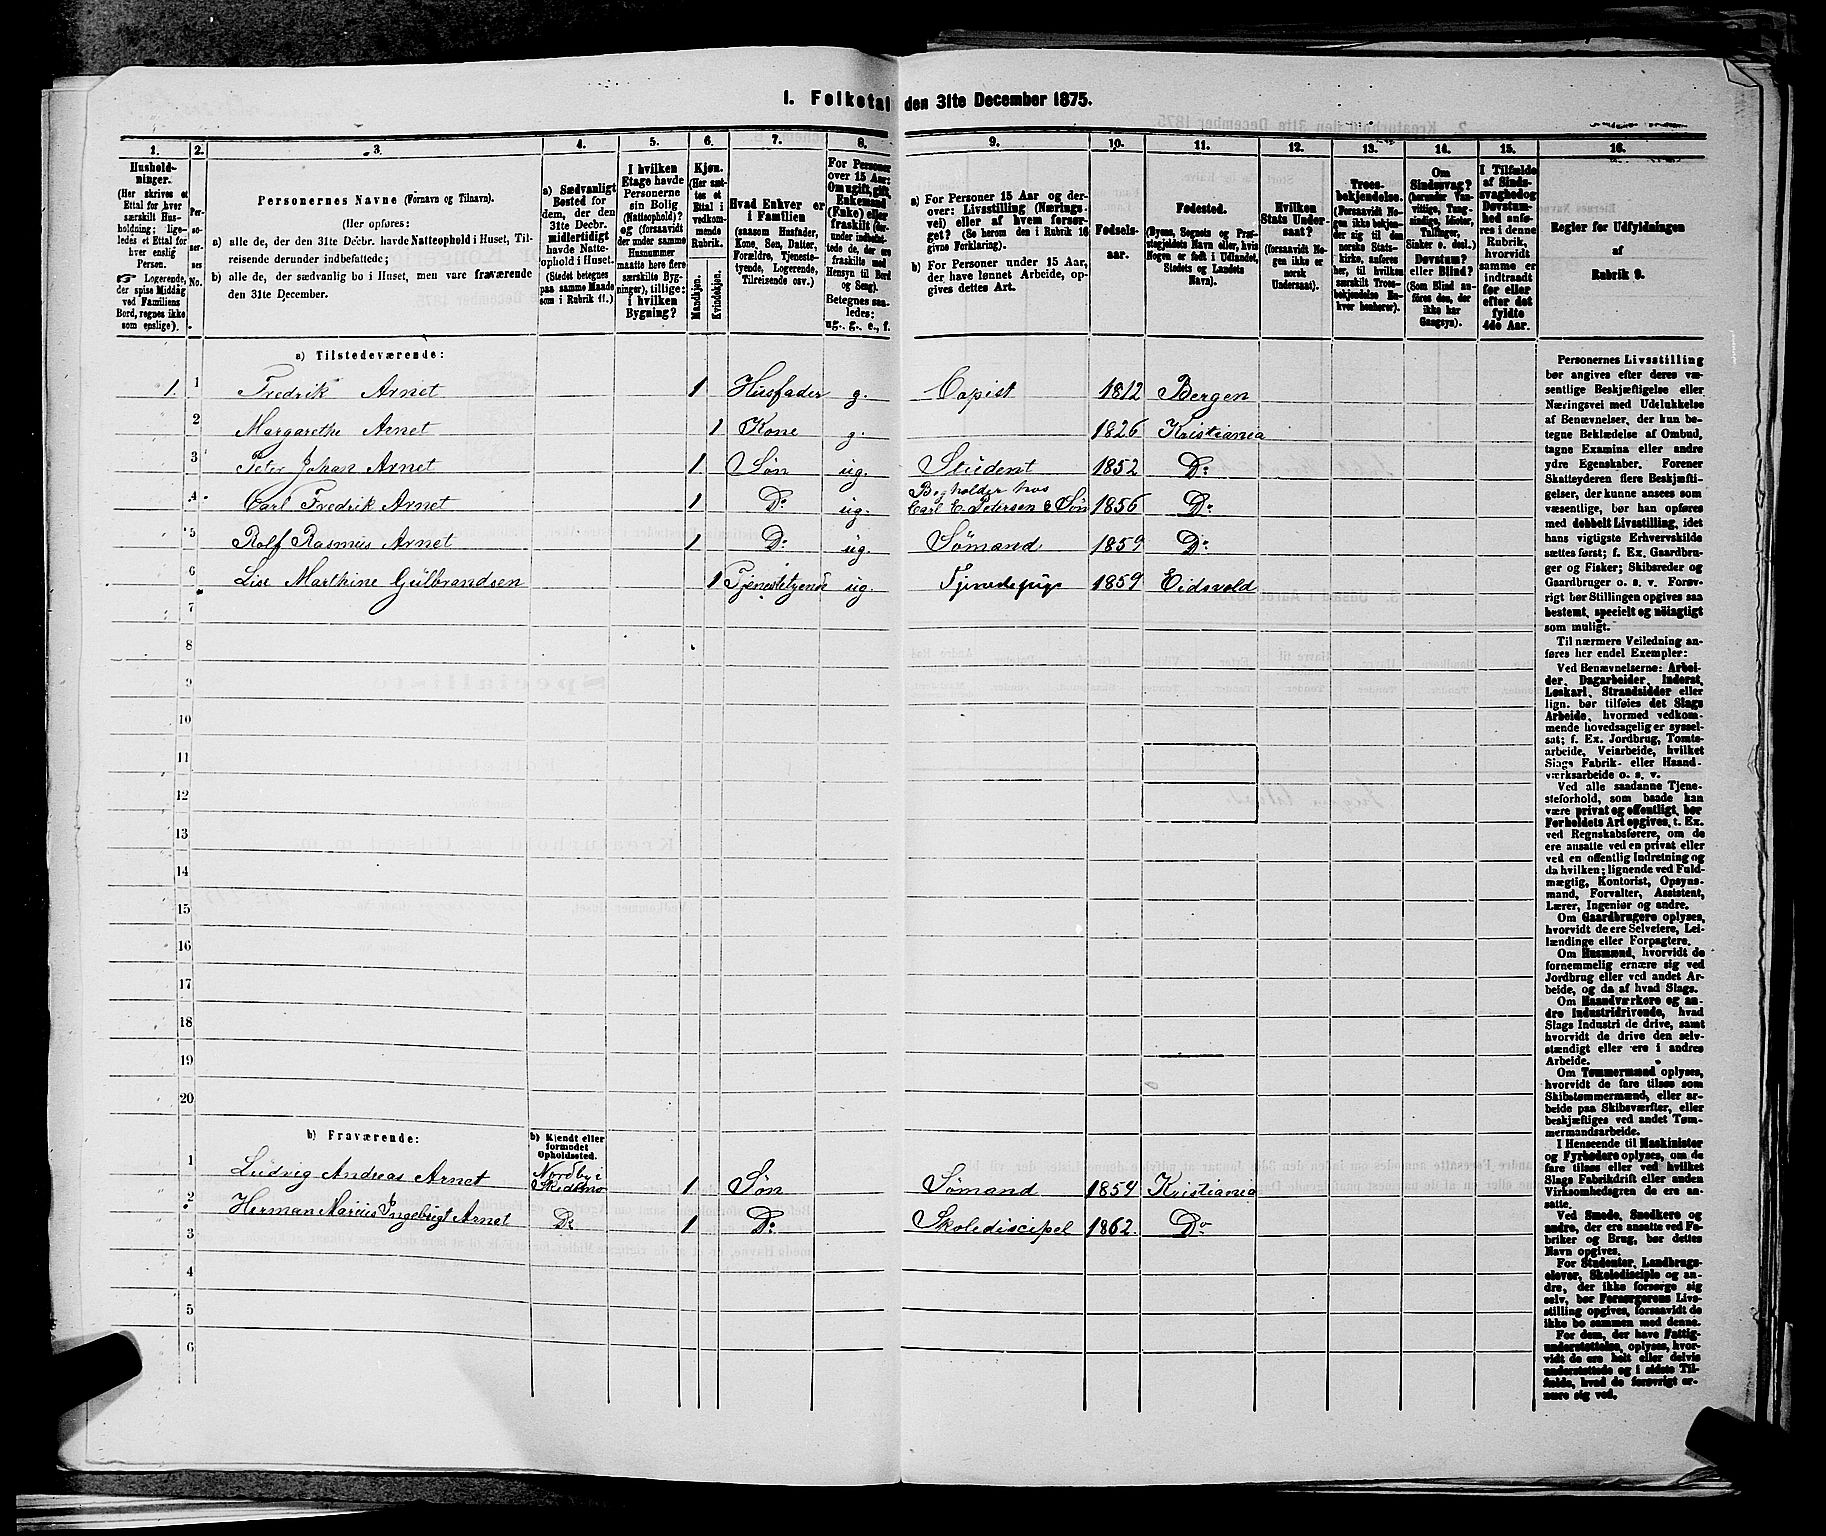 I. Folketal den 31te December 1875.
1. 2. 3. 4. 5. 6. 7. 8. 9. 10. 11. 12. 13. 14. 15. 16.
Husholdninger.
(Her skrives et
Ettal for hver
særskilt Husholdning;
ligeledes et Ettal for
hver enslig
Person.
☞ Logerende,
der spise Middag
ved Familiens
Bord, regnes ikke
som enslige).
Personernes No.
Personernes Navne (Fornavn og Tilnavn).
(Her opføres:
a) alle de, der den 31te Decbr. havde Natteophold i Huset, Tilreisende derunder indbefattede;
b) alle de, der sædvanlig bo i Huset, men vare fraværende
den 31te December.
a) Sædvanligt
Bosted for
dem, der den
31te Decbr.
midlertidigt
havde Natteophold i Huset.
(Stedet betegnes
paa samme Maade
som i Rubrik 11.)
I hvilken
Etage havde
Personerne
sin Bolig
(Natteophold)?
og (forsaavidt
der under samme
Husnummer
maatte høre flere
særskilte Bygninger), tillige:
i hvilken
Bygning?
Kjøn.
(Her sættes et
Ettal i
vedkommende
Rubrik.
Mandkjøn.
Kvindekjøn.
Hvad Enhver er
i Familien
(saasom Husfader,
Kone, Søn, Datter,
Forældre, Tjenestetyende, Logerende,
Tilreisende osv.)
For Personer
over 15 Aar:
Om ugift, gift,
Enkemand
(Enke) eller
fraskilt
Betegnes saaledes:
ug., g., e., f.
a) For Personer 15 Aar og derover: Livsstilling (Næringsvei) eller af hvem forsørget? (Se herom den i Rubrik 16
givne Forklaring).
b) For Personer under 15 Aar,
der have lønnet Arbeide, opgives dettes Art.
Fødselsaar.
Fødested.
(Byens, Sognets og Præstegjeldets Navn eller, hvis
Nogen er født i Udlandet,
Stedets og Landets
Navn).
Hvilken
Stats Undersaat?
(forsaavidt Nogen ikke er
norsk
Undersaat).
Troesbekjendelse.
(Forsaavidt Nogen ikke bekjender sig til den
norske Statskirke, anføres
her, til hvilken
særskilt Troesbekjendelse Enhver henhører).
Om
Sindssvag?
(herunder Vanvittige, Tungsindige, Idioter,
Tullinger,
Sinker o. desl.)
Døvstum?
eller Blind?
(Som Blind anføres den, der
ikke har
Gangsyn).
I Tilfælde
af Sindssvaghed og
Døvstumhed anføres i denne
Rubrik,
hvorvidt
samme er
indtraadt
før eller
efter det
fyldte
4de Aar.
Regler for Udfyldningen
af
Rubrik 9.
a) Tilstedeværende:
1. 1 Fredrik Arnet 1 Husfader g. Copist 1812 Bergen
2 Margarethe Arnet 1 Kone g. 1826 Kristiania
3 Peter Johan Arnet 1 Søn ug. Student 1852 Do
4 Carl Fredrik Arnet 1 Do ug. Bogholder hos Carl C. Petersen & Søn 1856 Do
5 Rolf Rasmus Arnet 1 Do ug. Sømand 1859 Do
6 Lise Marthine Gulbrandsen 1 Tjenestetyende ug. Tjenestepige 1859 Eidsvold
7
8
9
10
11
12
13
14
15
16
17
18
19
20
b) Fraværende:
b) Kjendt eller
formodet
Opholdssted.
1 Ludvig Andreas Arnet Nordby i 1 Søn Sømand 1854 Kristiania
2 Herman Marius Ingebrigt Arnet Do 1 Do Skolediscipel 1862. Do
3
4
5
6
Personernes Livsstilling
bør angives efter deres væsentlige Beskjæftigelse eller
Næringsvei med Udelukkelse
af Benævnelser, der kun betegne Beklædelse af Ombud,
tagne Examina eller andre
ydre Egenskaber. Forener
Skatteyderen flere Beskjæftigelser, der kunne ansees som
væsentlige, bør han opføres
med dobbelt Livsstilling, idet
hans vigtigste Erhvervskilde
sættes først; f. Ex. Gaardbruger og Fisker; Skibsreder og
Gaardbruger o. s. v. Forøvrigt bør Stillingen opgives saa
bestemt, specielt og nøiagtigt
som muligt.
Til nærmere Veiledning anføres her endel Exempler:
Ved Benævnelserne: Arbeider, Dagarbeider, Inderst,
Løskarl, Strandsidder eller
lign. bør tilføies det Slags
Arbeide, hvormed vedkommende hovedsagelig er sysselsat; f. Ex. Jordbrug, Tomtearbeide, Veiarbeide, hvilket
Slags Fabrik- eller Haandværksarbeide o. s. v.
Ved alle saadanne Tjenesteforhold, som baade kan
være privat og offentligt, bør
Forholdets Art opgives, t. Ex.
ved Regnskabsførere, om de
ere ansatte ved en privat eller
ved en offentlig Indretning og
da hvilken; lignende ved Fuldmægtig, Kontorist, Opsynsmand, Forvalter, Assistent,
Lærer, Ingeniør og andre.
Om Gaardbrugere oplyses,
hvorvidt de ere Selveiere, Leilændinge eller Forpagtere.
Om Husmænd, hvorvidt de
fornemmelig ernære sig ved
Jordbrug eller ved andet Arbeide, og da af hvad Slags.
Om Haandværkere og andre Industridrivende, hvad
Slags Industri de drive, samt
hvorvidt de drive den selvstændigt eller ere i andres
Arbeide.
Om Tømmermænd oplyses,
hvorvidt de fare tilsøs som
Skibstømmermænd, eller arbeide paa Skibsværfter, eller
beskjæftiges ved andet Tømmermandsarbeide.
I Henseende til Maskinister
og Fyrbødere oplyses, om de
fare tilsøs eller ved hvilket
Slags Fabrikdrift eller anden
Virksomhed de ere ansatte.
Ved Smede, Snedkere og
andre, der ere ansatte ved Fabriker og Brug, bør dettes
Navn opgives.
For Studenter, Landbrugselever, Skoledisciple og andre, der ikke forsørge sig
selv, bør Forsørgerens Livsstilling opgives, forsaavidt de
ikke bo sammen med denne.
For dem, der have Fattigunderstøttelse, oplyses, hvorvidt de ere helt eller delvis
understøttede og i sidste Tilfælde, hvad de forøvrigt ernære sig ved.